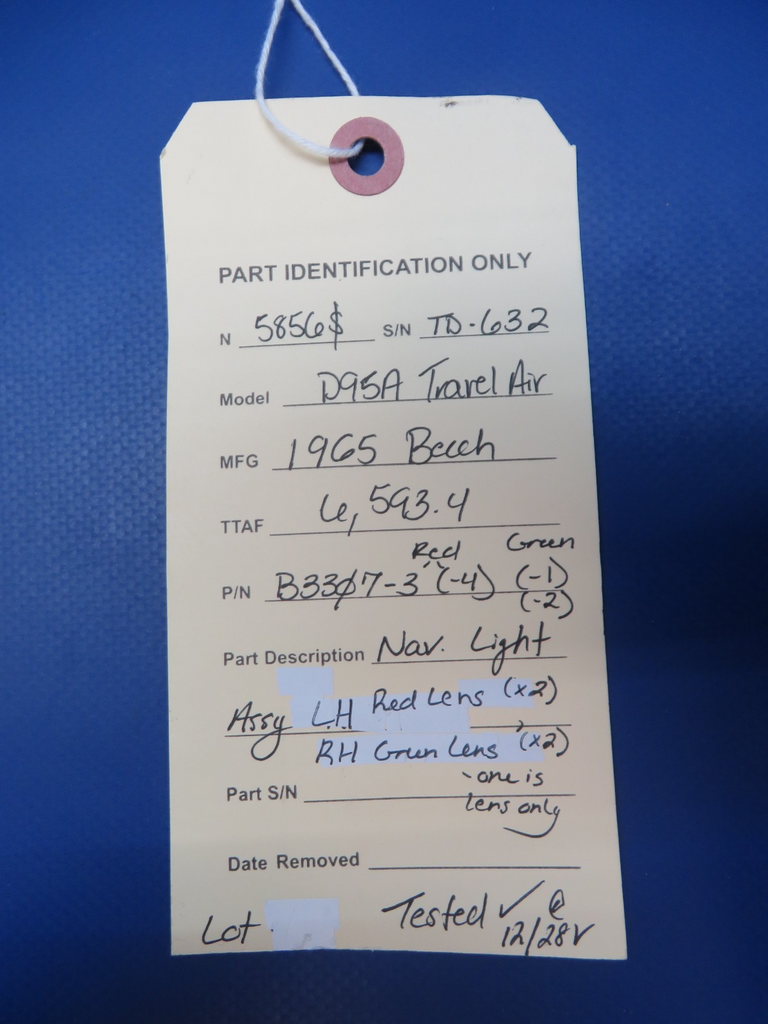 PART IDENTIFICATION ONLY
N 5856$ S/N TD-632
Model D95A Travel Air
MFG 1965 Beech
TTAF 6,593.4
Red Green
P/N B33Ø7-3 (-4) (-1)
(-2)
Part Description Nav. Light
Assy LH Red Lens (x2)
RH Green Lens (x2)
- one is
Part S/N lens only
Date Removed
Lot Tested ✓ @
12/28V